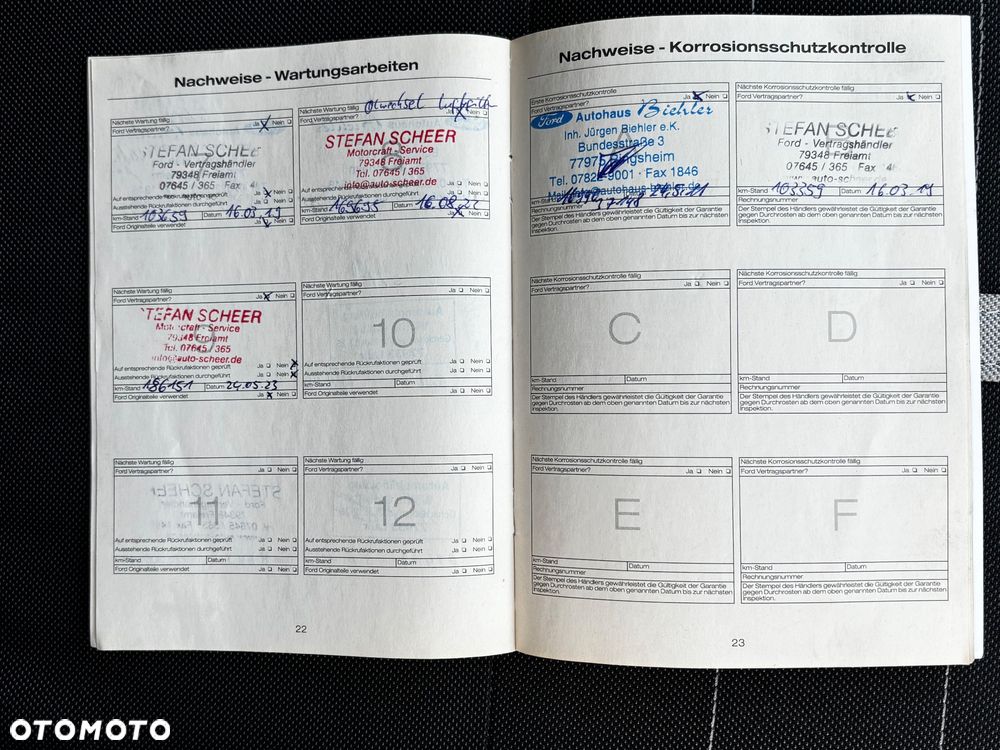 Nachweise - Wartungsarbeiten
Nächste Wartung fällig
Ford Vertragspartner? Ja Nein
STEFAN SCHEE
Ford - Vertragshändler
79348 Freiamt
07645 / 365 Fax
Auf entsprechende
Ausstehende Rückrufaktionen durchgeführt
km-Stand 103659 Datum 16.03.19
Ford Originalteile verwendet Ja Nein
Nächste Wartung fällig Ölwechsel
Ja Nein
STEFAN SCHEER
Motorcraft - Service
79348 Freiamt
Tel. 07645 / 365
info@auto-scheer.de
km-Stand 165695 Datum 16.08.22
Ford Originalteile verwendet Ja Nein
Nächste Wartung fällig
Ford Vertragspartner? Ja Nein
STEFAN SCHEER
Motorcraft - Service
79348 Freiamt
Tel. 07645 / 365
info@auto-scheer.de
Auf entsprechende Rückrufaktionen geprüft Ja Nein
Ausstehende Rückrufaktionen durchgeführt Ja Nein
km-Stand 186151 Datum 24.05.23
Ford Originalteile verwendet Ja Nein
Nächste Wartung fällig
Ford Vertragspartner? Ja Nein
10
Auf entsprechende Rückrufaktionen geprüft Ja Nein
Ausstehende Rückrufaktionen durchgeführt Ja Nein
km-Stand Datum
Ford Originalteile verwendet Ja Nein
Nächste Wartung fällig
Ford Vertragspartner? Ja Nein
11
Auf entsprechende Rückrufaktionen geprüft Ja Nein
Ausstehende Rückrufaktionen durchgeführt Ja Nein
km-Stand Datum
Ford Originalteile verwendet Ja Nein
Nächste Wartung fällig
Ford Vertragspartner? Ja Nein
12
Auf entsprechende Rückrufaktionen geprüft Ja Nein
Ausstehende Rückrufaktionen durchgeführt Ja Nein
km-Stand Datum
Ford Originalteile verwendet Ja Nein
22
Nachweise - Korrosionsschutzkontrolle
Erste Korrosionsschutzkontrolle
Ford Vertragspartner? Ja Nein
Ford Autohaus Biehler
Inh. Jürgen Biehler e.K.
Bundesstraße 3
77975 Ringsheim
Tel. 07822-9001 · Fax 1846
km-Stand
Rechnungsnummer
Der Stempel des Händlers gewährleistet die Gültigkeit der Garantie
gegen Durchrosten ab dem oben genannten Datum bis zur nächsten
Inspektion.
Nächste Korrosionsschutzkontrolle fällig
Ford Vertragspartner? Ja Nein
STEFAN
Ford - Vertragshändler
79348 Freiamt
07645 / 365 Fax
km-Stand 103359 Datum 16.03.19
Rechnungsnummer
Der Stempel des Händlers gewährleistet die Gültigkeit der Garantie
gegen Durchrosten ab dem oben genannten Datum bis zur nächsten
Inspektion.
Nächste Korrosionsschutzkontrolle fällig
Ford Vertragspartner? Ja Nein
C
km-Stand Datum
Rechnungsnummer
Der Stempel des Händlers gewährleistet die Gültigkeit der Garantie
gegen Durchrosten ab dem oben genannten Datum bis zur nächsten
Inspektion.
Nächste Korrosionsschutzkontrolle fällig
Ford Vertragspartner? Ja Nein
D
km-Stand Datum
Rechnungsnummer
Der Stempel des Händlers gewährleistet die Gültigkeit der Garantie
gegen Durchrosten ab dem oben genannten Datum bis zur nächsten
Inspektion.
Nächste Korrosionsschutzkontrolle fällig
Ford Vertragspartner? Ja Nein
E
km-Stand Datum
Rechnungsnummer
Der Stempel des Händlers gewährleistet die Gültigkeit der Garantie
gegen Durchrosten ab dem oben genannten Datum bis zur nächsten
Inspektion.
Nächste Korrosionsschutzkontrolle fällig
Ford Vertragspartner? Ja Nein
F
km-Stand Datum
Rechnungsnummer
Der Stempel des Händlers gewährleistet die Gültigkeit der Garantie
gegen Durchrosten ab dem oben genannten Datum bis zur nächsten
Inspektion.
23
OTOMOTO